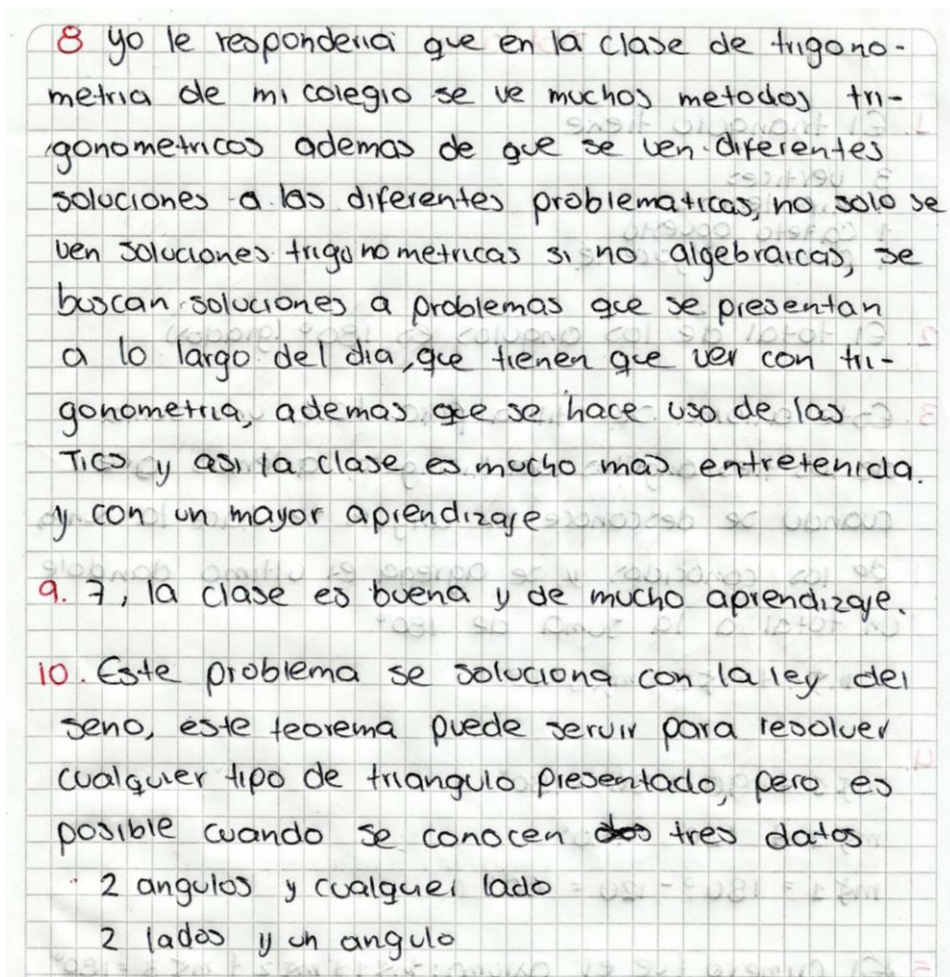 8 yo le responderia que en la clase de trigono-
metria de mi colegio se ve muchos metodos tri-
gonometricos ademas de que se ven diferentes
soluciones a las diferentes problematicas, no solo se
ven soluciones trigonometricas si no algebraicas, se
buscan soluciones a problemas que se presentan
a lo largo del dia, que tienen que ver con tri-
gonometria, ademas que se hace uso de las
Tics y asi la clase es mucho mas entretenida.
y con un mayor aprendizaje
9. 7, la clase es buena y de mucho aprendizaje.
10. Este problema se soluciona con la ley del
seno, este teorema puede servir para resolver
cualquier tipo de triangulo presentado, pero es
posible cuando se conocen dos tres datos
2 angulos y cualquier lado
2 lados y un angulo